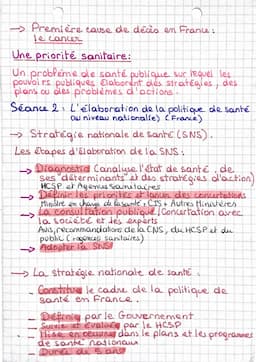 → Première cause de décès en France :
Le cancer
Une priorité sanitaire :
Un problème de santé publique sur lequel les
pouvoirs publiques élaborent des stratégies, des
plans ou des problèmes d'actions.
Séance 2 : L'élaboration de la politique de santé
au niveau nationalle) (France)
→ Stratégie nationale de santé (SNS).
Les étapes d'élaboration de la SNS :
→ Diagnostic (analyse l'état de santé, de
ses déterminants et des stratégies d'action)
HCSP et Agences sanitaires
→ Définir les priorités et lancer des concertations
Ministre en charge de la santé + CIS + Autres Ministères
→ La consultation publique (Concertation avec
la société et les experts
Avis, recommandations de la CNS, du HCSP et du
public (agences sanitaires)
→ Adopter la SNS
→ La stratégie nationale de santé :
- Constitue le cadre de la politique de
santé em France.
- Définie par le Gouvernement
- Suivie et évaluée par le HCSP
- Mise en oeuvre dans le plans et les programmes
de santé nationaux
- Durée de 5 ans